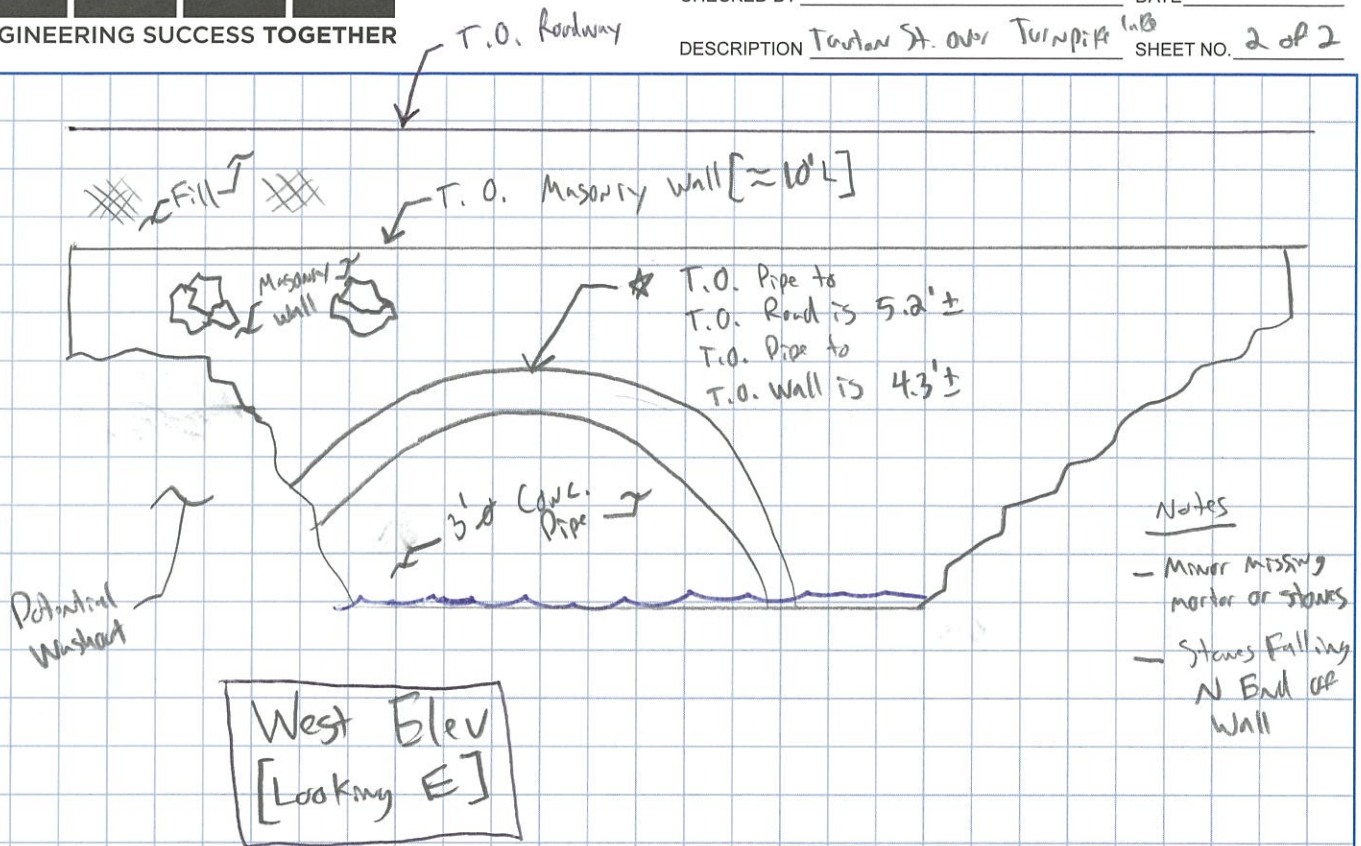 CHECKED BY
DATE
GINEERING SUCCESS TOGETHER
DESCRIPTION Taunton St. over Turnpike
SHEET NO. 2 of 2
T.O. Roadway
Fill
T.O. Masonry Wall [≈10'L]
Masonry
Wall
T.O. Pipe to
T.O. Road is 5.2'±
T.O. Pipe to
T.O. Wall is 4.3'±
3'ø Conc.
Pipe
Potential
Washout
Notes
- Minor missing
mortar or stones
- Stones Falling
N End of
Wall
West Elev
[Looking E]